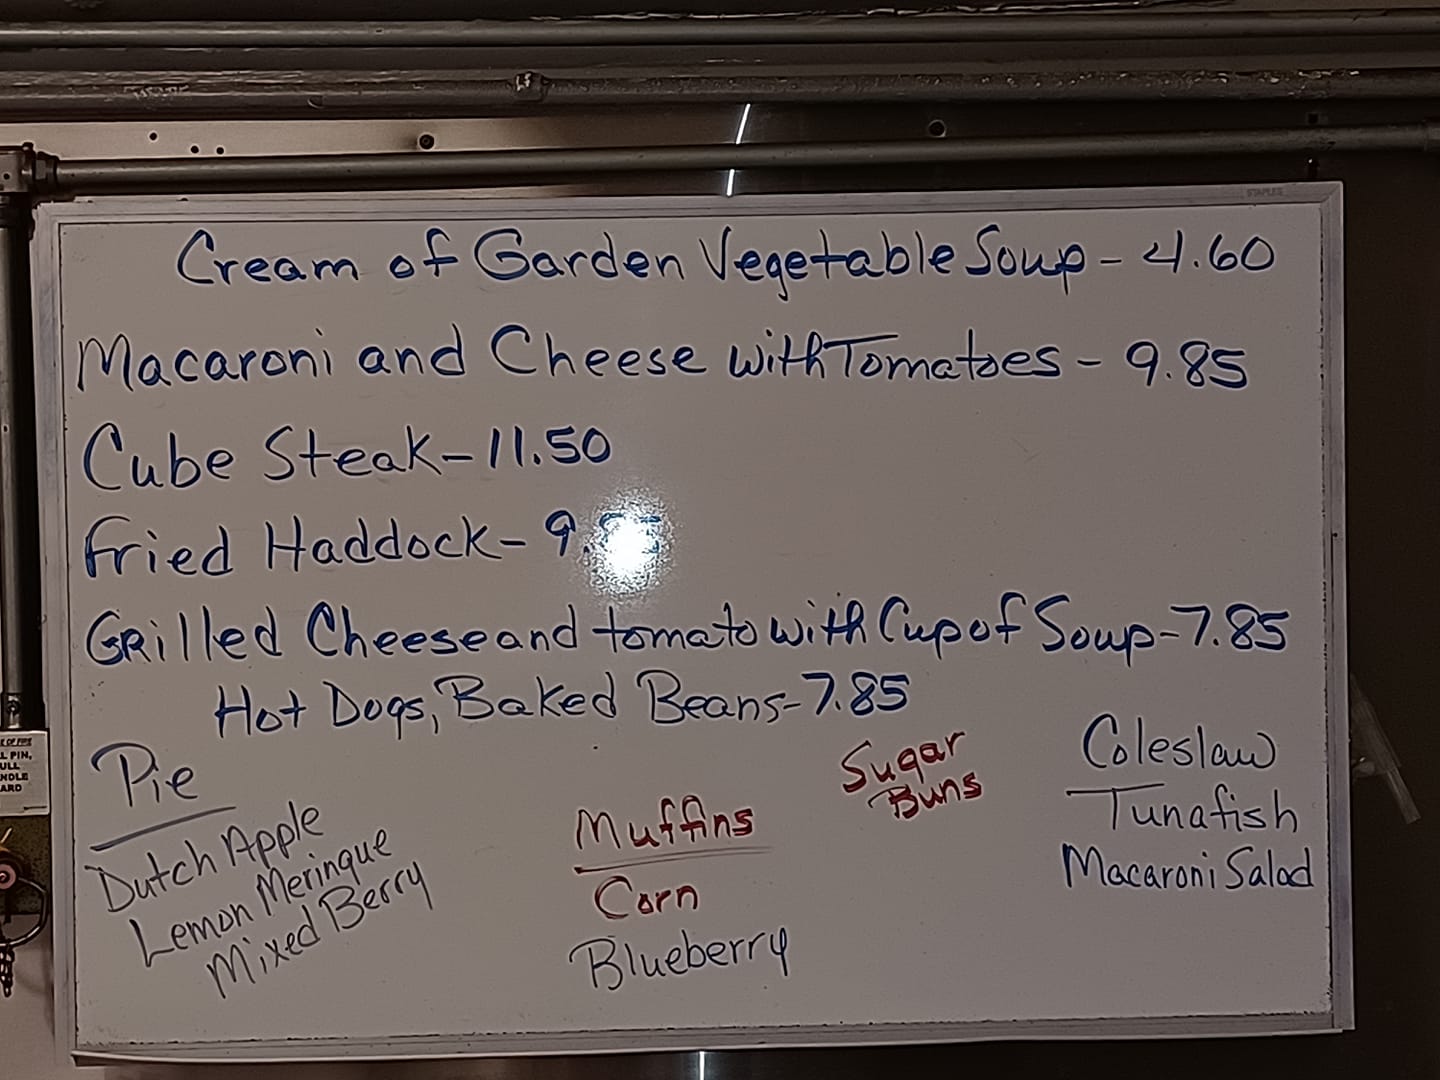 STAPLES
Cream of Garden Vegetable Soup - 4.60
Macaroni and Cheese with Tomatoes - 9.85
Cube Steak - 11.50
Fried Haddock -
Grilled Cheese and tomato with Cup of Soup - 7.85
Hot Dogs, Baked Beans - 7.85
Pie
Dutch Apple
Lemon Meringue
Mixed Berry
Muffins
Corn
Blueberry
Sugar
Buns
Coleslaw
Tunafish
Macaroni Salad
PIN,